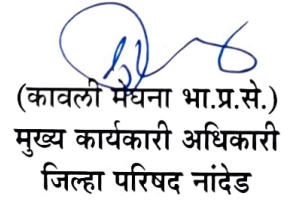 (कावली मेघना भा.प्र.से.)
मुख्य कार्यकारी अधिकारी
जिल्हा परिषद नांदेड